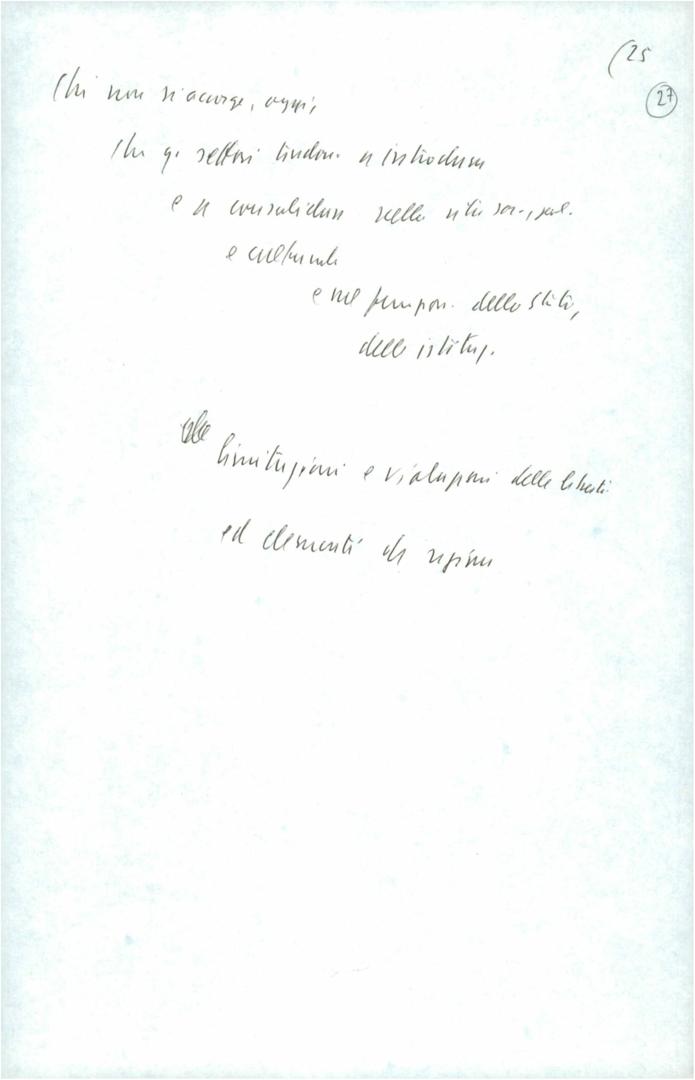 (25
27
Chi non si accorge, oggi,
che q. settori tendon. a introdurre
e a consolidare nella vita soc., pol.
e culturale
e nel funzion. dello Stato,
delle istituz.
limitazioni e violazioni delle libertà
ed elementi di regime